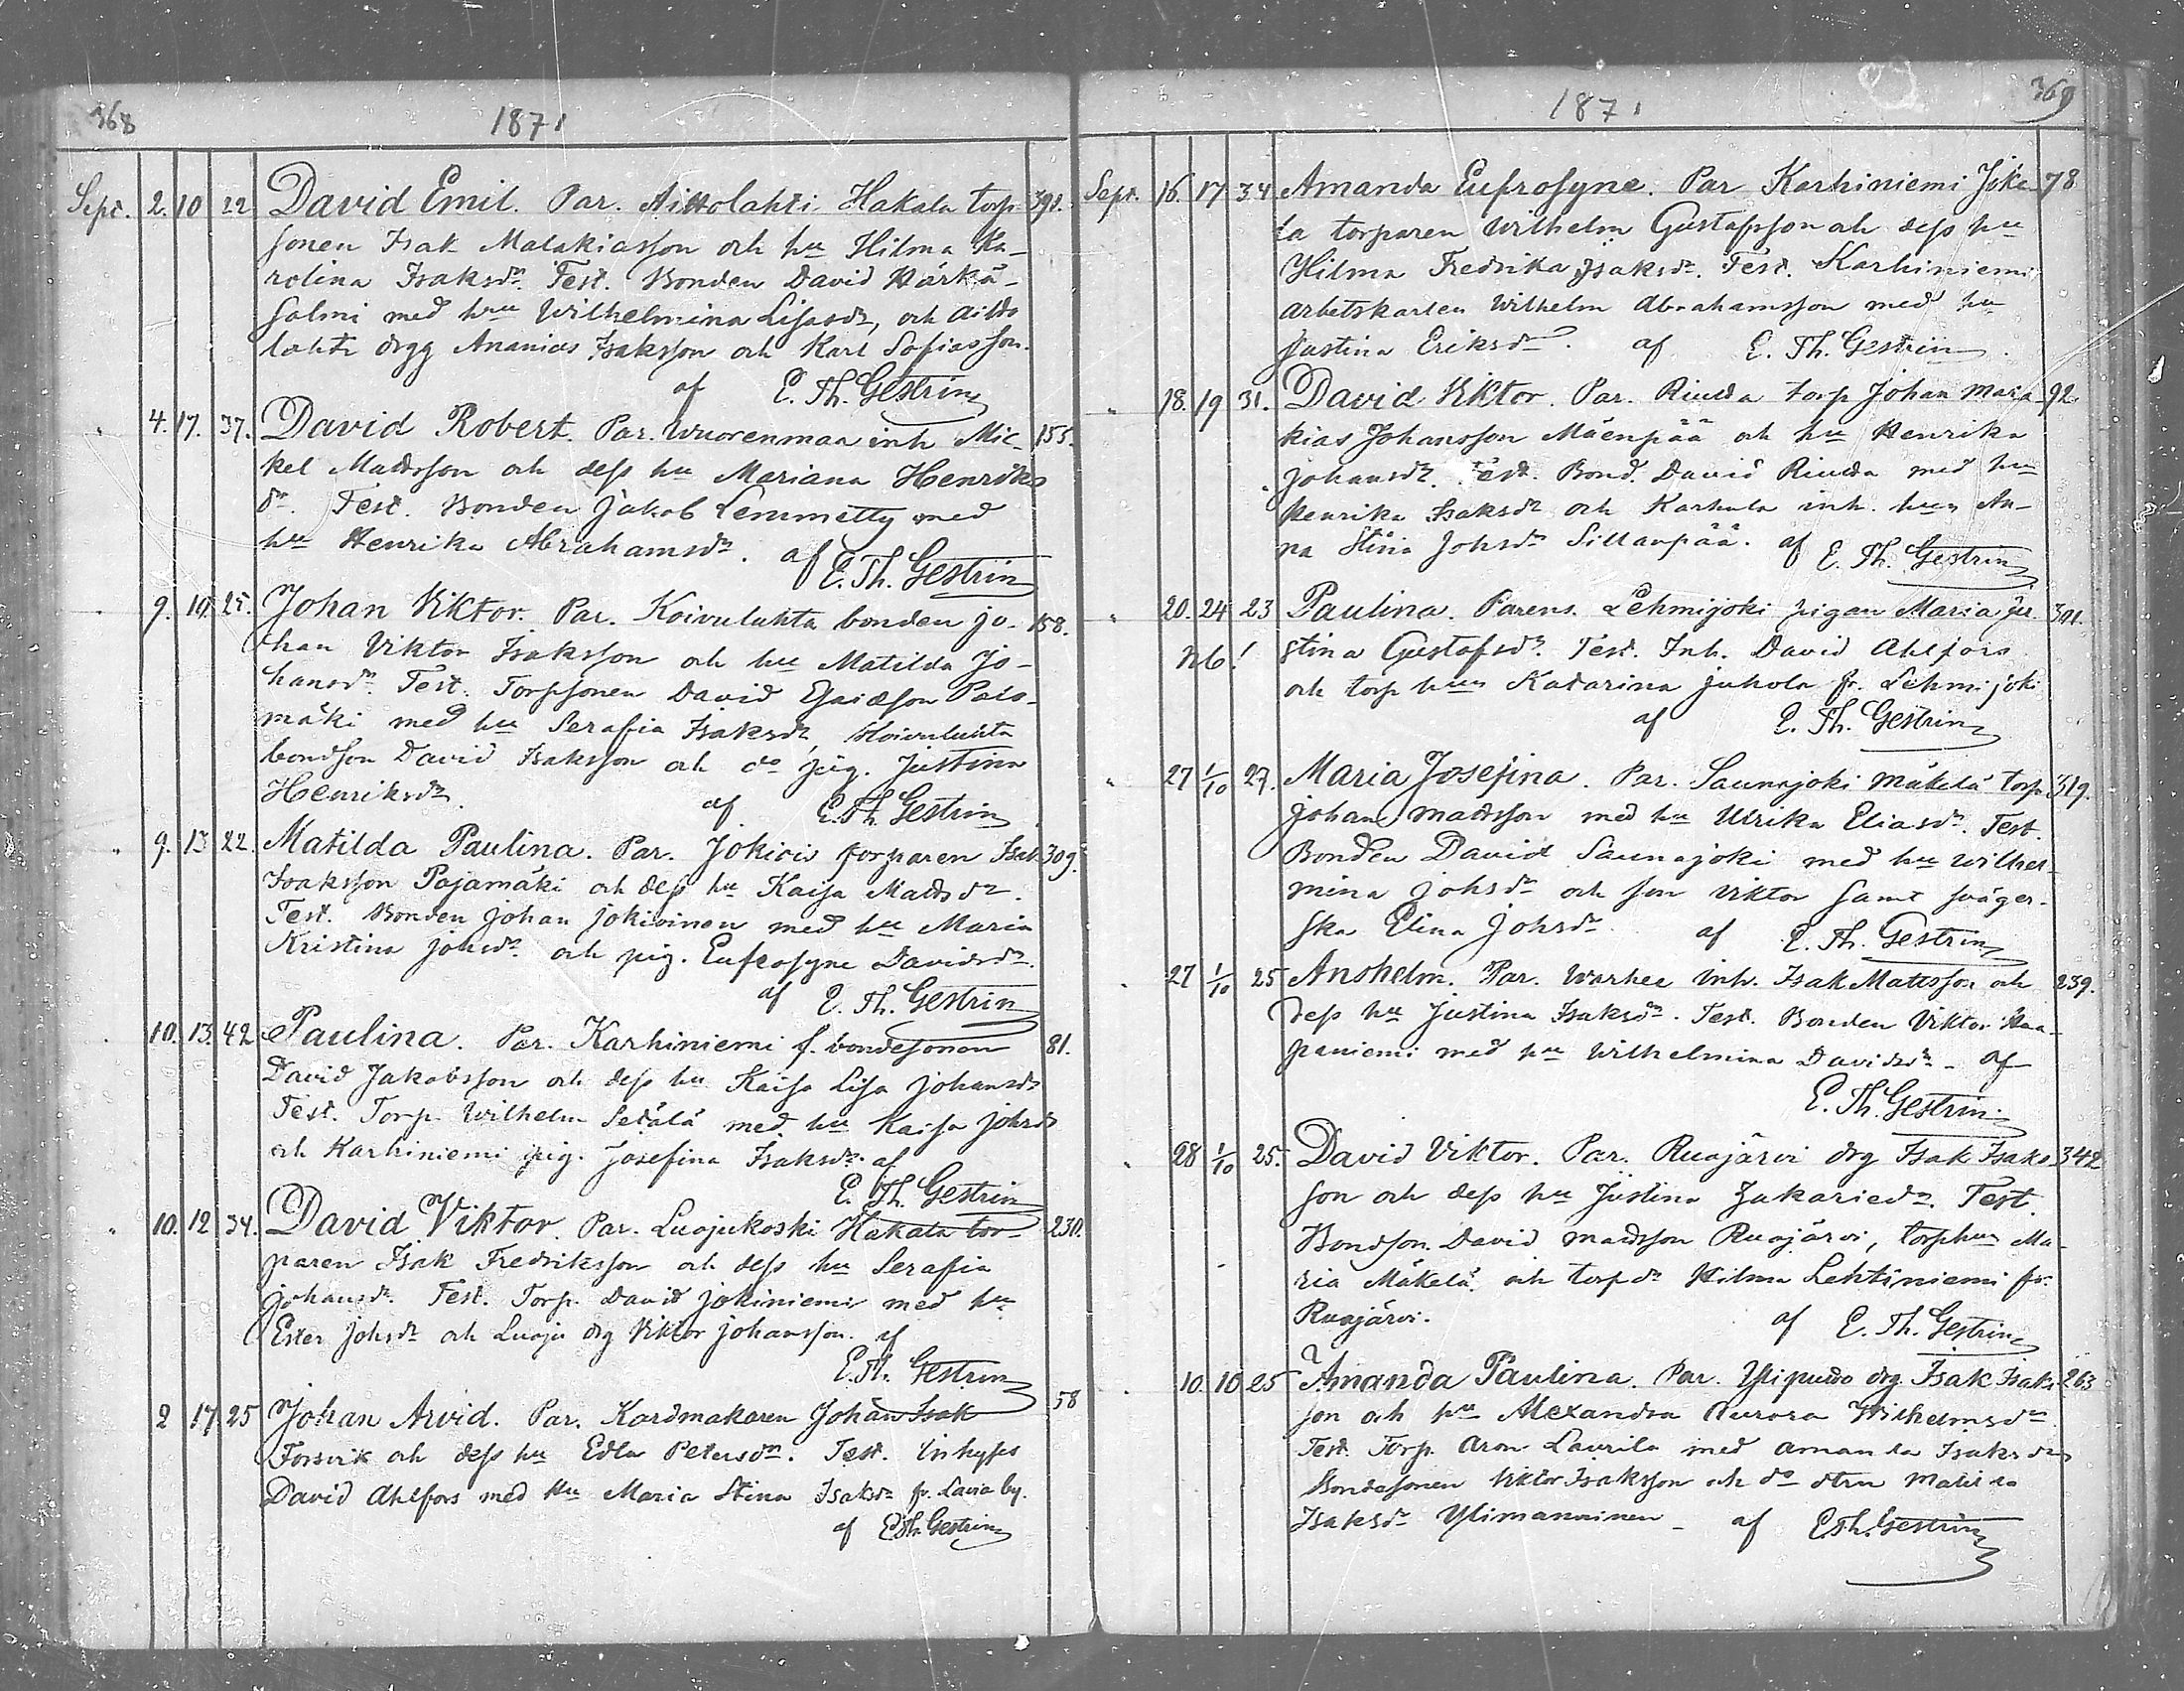 368
1871
Sept. 2. 10 22 David Emil. Par. Aittolahti Hakala torp 391.
sonen Isak Malakiasson och hu Hilma Ka-
rolina Isaksdr. Test. Bonden David Härkä-
salmi med hru Wilhelmina Lisasdr, och Aitto
lahti drgg Ananias Isaksson och Karl Sofiasson.
af E. Th. Gestrin
" 4. 17. 37. David Robert. Par. Wuorenmaa inh Mic- 155.
kel Mattsson och dess hu Mariana Henriks
dr. Test. Bonden Jakob Lemmetty med
hu Henrika Abrahamsdr. af E. Th. Gestrin
" 9. 10. 25. Johan Viktor. Par. Koivuluhta bonden Jo- 158.
han Viktor Isaksson och hu Matilda Jo-
hansdr. Test. Torpsonen David Esaiasson Palo-
mäki med hu Serafia Isaksdr, Koivuluhta
bondson David Isaksson och do pig. Justina
Henriksdr. af E. Th. Gestrin
" 9. 13 22. Matilda Paulina. Par. Jokivis torparen Isak 309.
Isaksson Pajamäki och dess hu Kaisa Mattsdr.
Test. Bonden Johan Jokivinen med hu Maria
Kristina Johsdr och pig. Eufrosyne Davidsdr.
af E. Th. Gestrin
" 10. 13. 42 Paulina. Par. Karhiniemi f. bondesonen 81.
David Jakobsson och dess hu Kaisa Lisa Johansdr
Test. Torp. Wilhelm Setälä med hu Kaisa Johsdr
och Karhiniemi pig. Josefina Isaksdr. af
E. Th. Gestrin
" 10. 12 34. David Viktor. Par. Luojukoski Hakala tor- 230.
paren Isak Fredriksson och dess hu Serafia
Johansdr. Test. Torp. David Jokiniemi med hu
Ester Johsdr och Luoju drg Viktor Johansson. af
E. Th. Gestrin
2 17 25 Johan Arvid. Par. Kardmakaren Johan Isak 58
Forsvik och dess hu Edla Petersdr. Test. Inhyses
David Ahlfors med hu Maria Stina Isaksdr fr. Lavia by.
af E. Th. Gestrin
369
1871
Sept. 16. 17 34 Amanda Eufrosyne. Par Karhiniemi Joke- 78
la torparen Wilhelm Gustafsson och dess hu
Hilma Fredrika Isaksdr. Test. Karhiniemi
arbetskarlen Wilhelm Abrahamsson med hu
Justina Eriksdr. af E. Th. Gestrin.
" 18. 19 31. David Viktor. Par. Riutta torp Johan Mara- 92.
kias Johansson Mäenpää och hu Henrika
Johansdr. Test. Bond. David Riutta med hu
Henrika Isaksdr och Karhula inh. hun An-
na Stina Johsdr Sillanpää. af E. Th. Gestrin
" 20. 24 23 Paulina. Parens. Lehmijoki pigan Maria Ju- 301.
Nb! stina Gustafsdr. Test. Inh. David Ahlfors
och torp hun Katarina Juhola fr. Lehmijoki
af E. Th. Gestrin
" 27 1/10 27. Maria Josefina. Par. Saunajoki Mäkelä torp 319.
Johan Mattsson med hu Ulrika Eliasdr. Test.
Bonden David Saunajoki med hu Wilhel-
mina Johsdr och son Viktor samt sväger-
ska Elina Johsdr. af E. Th. Gestrin
" 27 1/10 25 Anshelm. Par. Warhee inh. Isak Mattsson och 239.
dess hu Justina Isaksdr. Test. Bonden Viktor Haa-
paniemi med hu Wilhelmina Davidsdr - af
E. Th. Gestrin
" 28 1/10 25. David Viktor. Par. Ruojärvi drg Isak Isaks 342
son och dess hu Justina Zakariedr. Test.
Bondson David Mattsson Ruojärvi, torphun Ma-
ria Mäkelä och torpdr Hilma Lehtiniemi fr.
Ruojärvi. af E. Th. Gestrin
" 10. 10 25 Amanda Paulina. Par. Ylipudo drg. Isak Isaks 263
son och hu Alexandra Aurora Wilhelmsdr
Test. Torp. Aron Laurila med Amanda Isaksdr
Bondesonen Viktor Isaksson och do dtrn Matilda
Isaksdr Ylimanninen - af E. Th. Gestrin